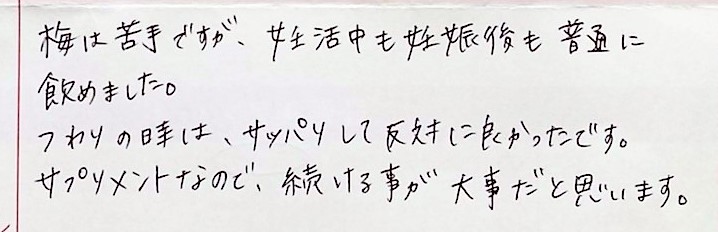 梅は苦手ですが、妊活中も妊娠後も普通に
飲めました。
つわりの時は、サッパリして反対に良かったです。
サプリメントなので、続ける事が大事だと思います。